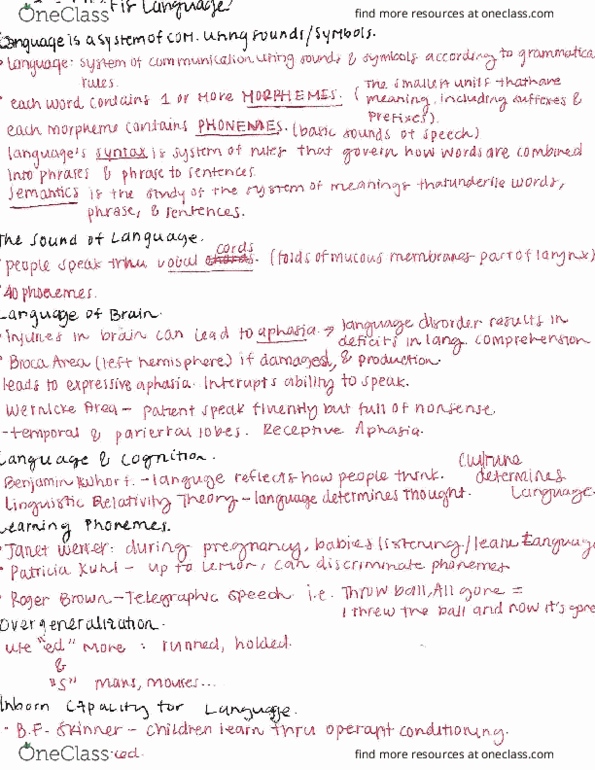 is Language?
OneClass find more resources at oneclass.com
Language is a system of com. using sounds/symbols.
• language: system of communication using sounds & symbols according to grammatica
rules.
• each word contains 1 or more MORPHEMES. (The smallest units that have
meaning, including suffexes &
prefixes).
each morpheme contains PHONEMES. (basic sounds of speech)
language's syntax is system of rules that govern how words are combined
into phrases & phrase to sentences.
semantics is the study of the system of meanings that underlie words,
phrase, & sentences.
The Sound of Language.
cords
• people speak thru vocal chords. (folds of mucous membranes - part of larynx)
• 40 phonemes.
Language of Brain.
• injuries in brain can lead to aphasia → language disorder results in
deficits in lang. comprehension
• Broca Area (left hemisphere) if damaged, & production.
leads to expressive aphasia. Interupts ability to speak.
Wernicke Area - patient speak fluently but full of nonsense.
- temporal & parietal lobes. Receptive Aphasia.
Language & Cognition.
Culture
Benjamin - language reflects how people think. determines
Linguistic Relativity Theory - language determines thought. Language.
Learning Phonemes.
• Janet : during pregnancy, babies listening/learn Language
• Patricia Kuhl - up to , can discriminate phonemes
• Roger Brown - Telegraphic speech i.e. Throw ball, All gone =
I threw the ball and now it's gone
Overgeneralization.
use "ed" more : runned, holded.
&
"s" mans, mouses...
Inborn Capacity for Language.
• B.F. Skinner - children learn thru operant conditioning.
OneClass find more resources at oneclass.com